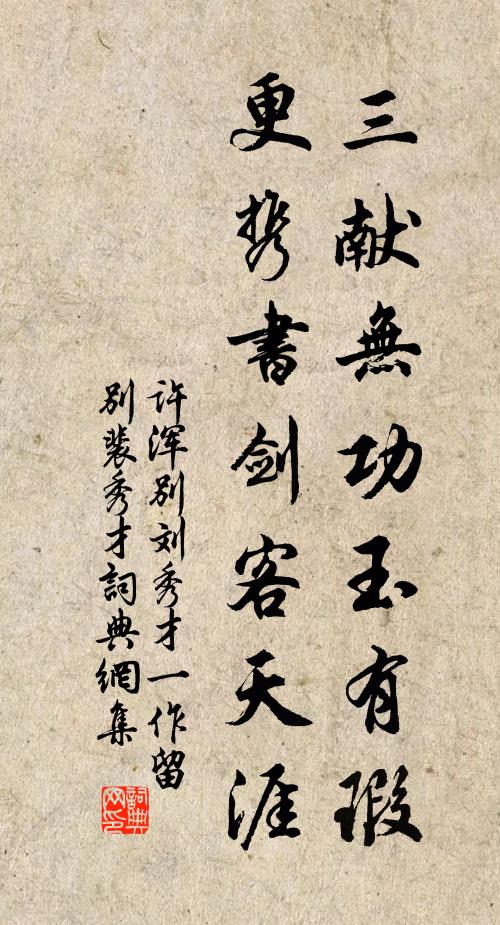 三献無功玉有瑕
更携書剑客天涯
许浑别刘秀才一作留
别裴秀才詞典網集
詞典
网印